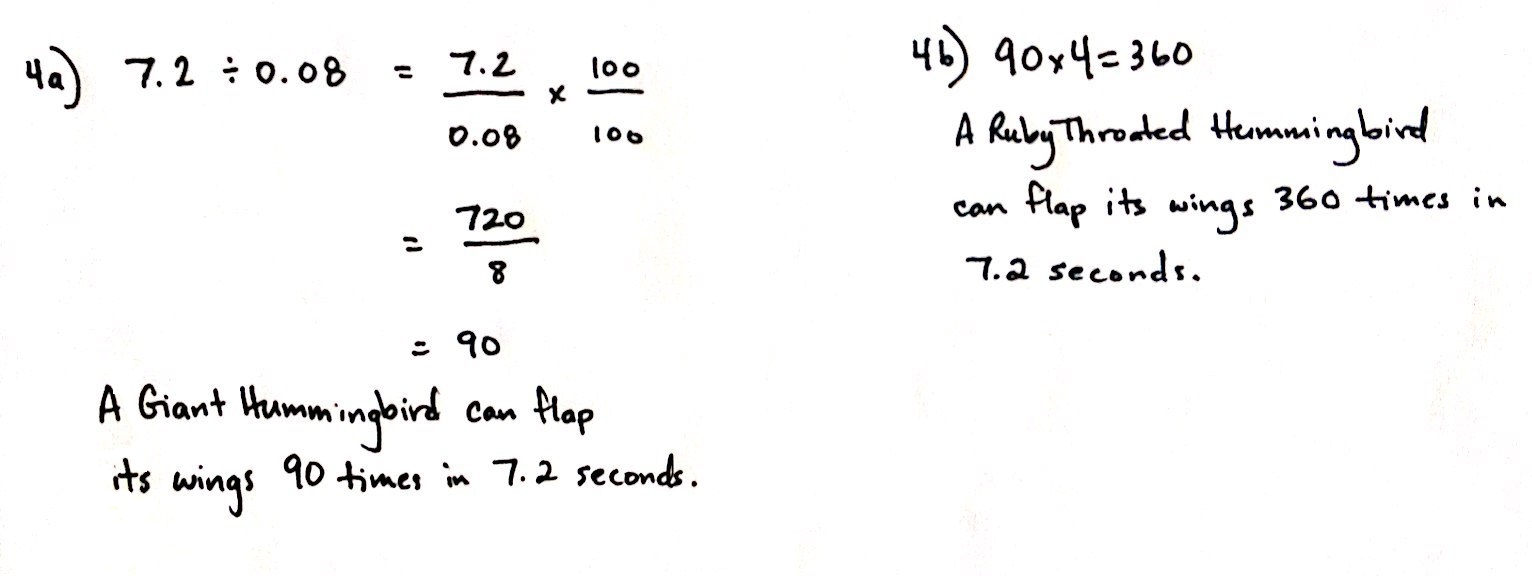 4a) 7.2 ÷ 0.08 = 7.2/0.08 x 100/100
= 720/8
= 90
A Giant Hummingbird can flap
its wings 90 times in 7.2 seconds.
4b) 90x4=360
A Ruby Throated Hummingbird
can flap its wings 360 times in
7.2 seconds.